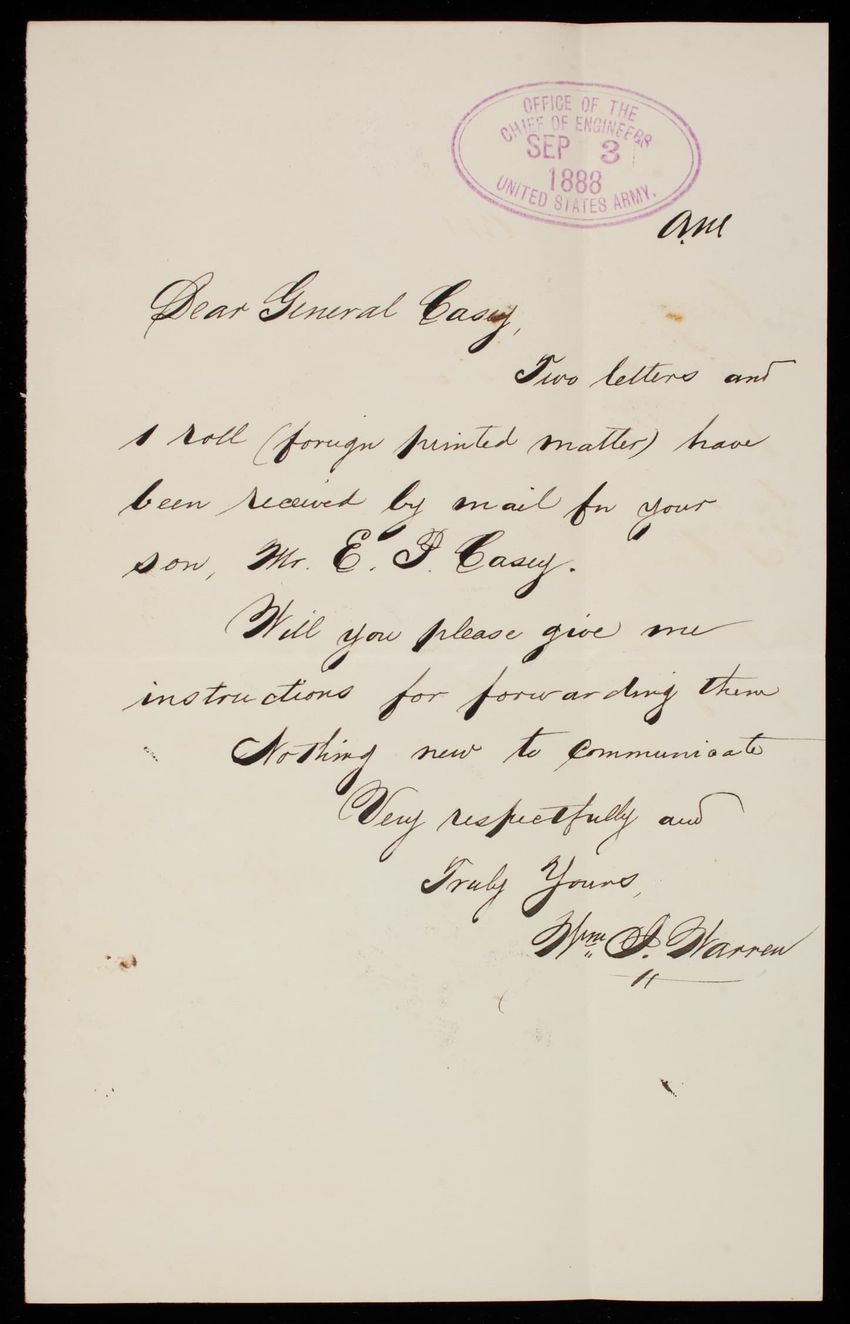 OFFICE OF THE
CHIEF OF ENGINEERS
SEP 3
1888
UNITED STATES ARMY.
AM
Dear General Casey,
Two letters and
1 roll (foreign printed matter) have
been received by mail for your
son, Mr. E. P. Casey.
Will you please give me
instructions for forwarding them
Nothing new to communicate
Very respectfully and
Truly Yours,
Wm J. Warren